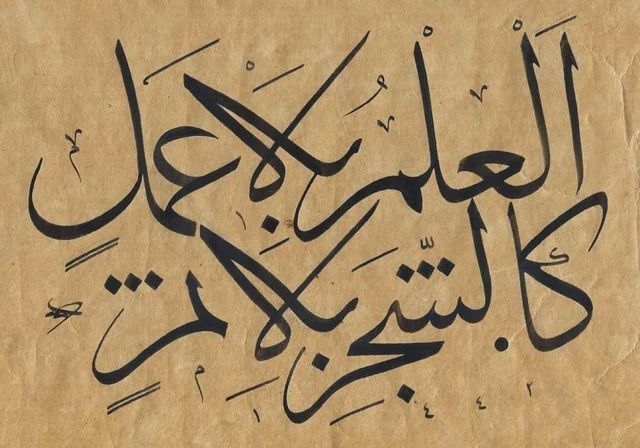 اَلْعِلْمُ بِلَا عَمَلٍ
كَالشَّجَرِ بِلَا ثَمَرٍ
١٤٤٢